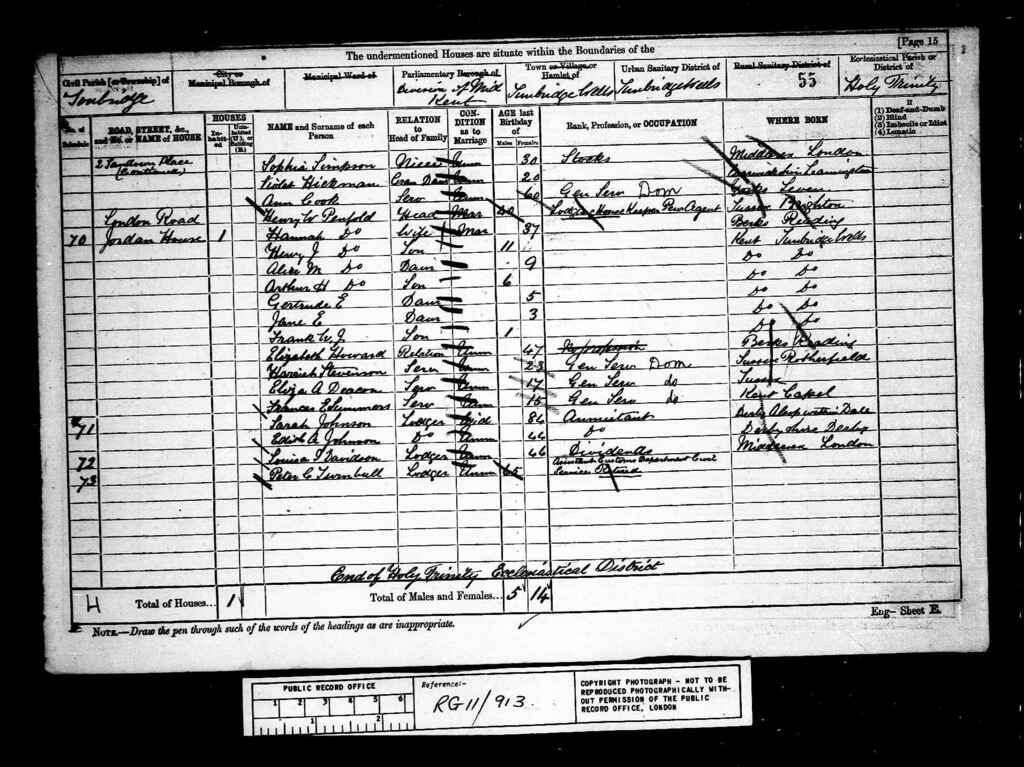 The undermentioned Houses are situate within the Boundaries of the
[Page 15
Civil Parish [or Township] of
Tonbridge
City or
Municipal Borough of
Municipal Ward of
Parliamentary Borough of
Division of Mid
Kent
Town or Village or
Hamlet of
Tunbridge Wells
Urban Sanitary District of
Tunbridge Wells
Rural Sanitary District of
55
Ecclesiastical Parish or
District of
Holy Trinity
No. of
Schedule
ROAD, STREET, &c.,
and No. or NAME of HOUSE
HOUSES
In-
habit-
ed
Unin-
habited
(U.), or
Building
(B.)
NAME and Surname of each
Person
RELATION
to
Head of Family
CON-
DITION
as to
Marriage
AGE last
Birthday
of
Males Females
Rank, Profession, or OCCUPATION
WHERE BORN
If
(1) Deaf-and-Dumb
(2) Blind
(3) Imbecile or Idiot
(4) Lunatic
2 Place Sophia Simpson Niece Unm 30 Stocks Middlesex London
Violet Hickman Unm 20 Leamington
Ann Cook Serv Unm 60 Gen Serv Dom
London Road Henry W Penfold Head Mar 40 Lodging House Keeper Pew Agent Sussex Brighton
70 Jordan House 1 Hannah Do Wife Mar 37 Berks Reading
Henry J Do Son 11 Kent Tunbridge Wells
Alice M Do Daur 9 Do Do
Arthur H Do Son 6 Do Do
Gertrude E Daur 5 Do Do
Jane E Daur 3 Do Do
Frank W J Son 1 Do Do
Elizabeth Howard Relation Unm 47 No profession Berks Reading
Harriet Stevenson Serv Unm 23 Gen Serv Dom Sussex Rotherfield
Eliza A Deacon Serv Unm 17 Gen Serv do Sussex
Frances E Simmons Serv Unm 15 Gen Serv do Kent Capel
71 Sarah Johnson Lodger Wid 84 Annuitant Derby
Edith A Johnson Do Unm 44 Do Derbyshire Derby
72 Louisa Davidson Lodger Unm 46 Dividends Middlesex London
73 Peter C Turnbull Lodger Unm 65 Customs Department Civil
Service Retired
End of Holy Trinity Ecclesiastical District
4 Total of Houses... 1 Total of Males and Females... 5 14
Eng- Sheet E.
NOTE.—Draw the pen through such of the words of the headings as are inappropriate.
PUBLIC RECORD OFFICE
1 2 3 4 5 6
1 2
Reference:-
RG11/913.
COPYRIGHT PHOTOGRAPH - NOT TO BE
REPRODUCED PHOTOGRAPHICALLY WITH-
OUT PERMISSION OF THE PUBLIC
RECORD OFFICE, LONDON